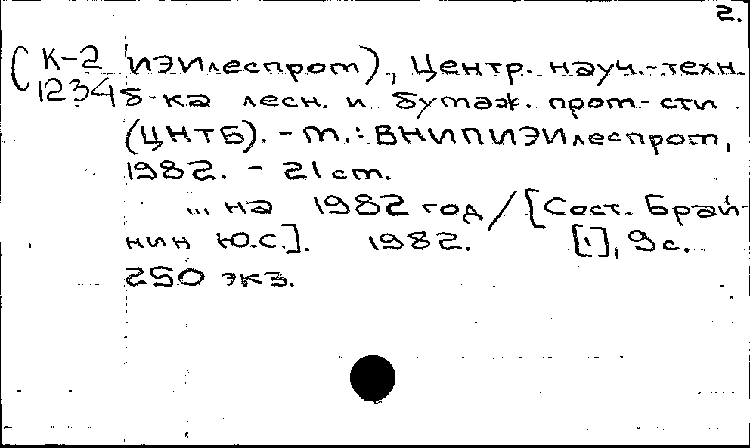 2.
(К-2 ИЭИлеспром), Центр. науч.-техн.
12348-ка лесн. и бумаж. пром-сти
(ЦНТБ). - М.: ВНИПИЭИлеспром,
1982. - 21 см.
... на 1982 год / [Сост. Брай-
нин Ю.С.]. 1982. [1], 9 с.
250 экз.